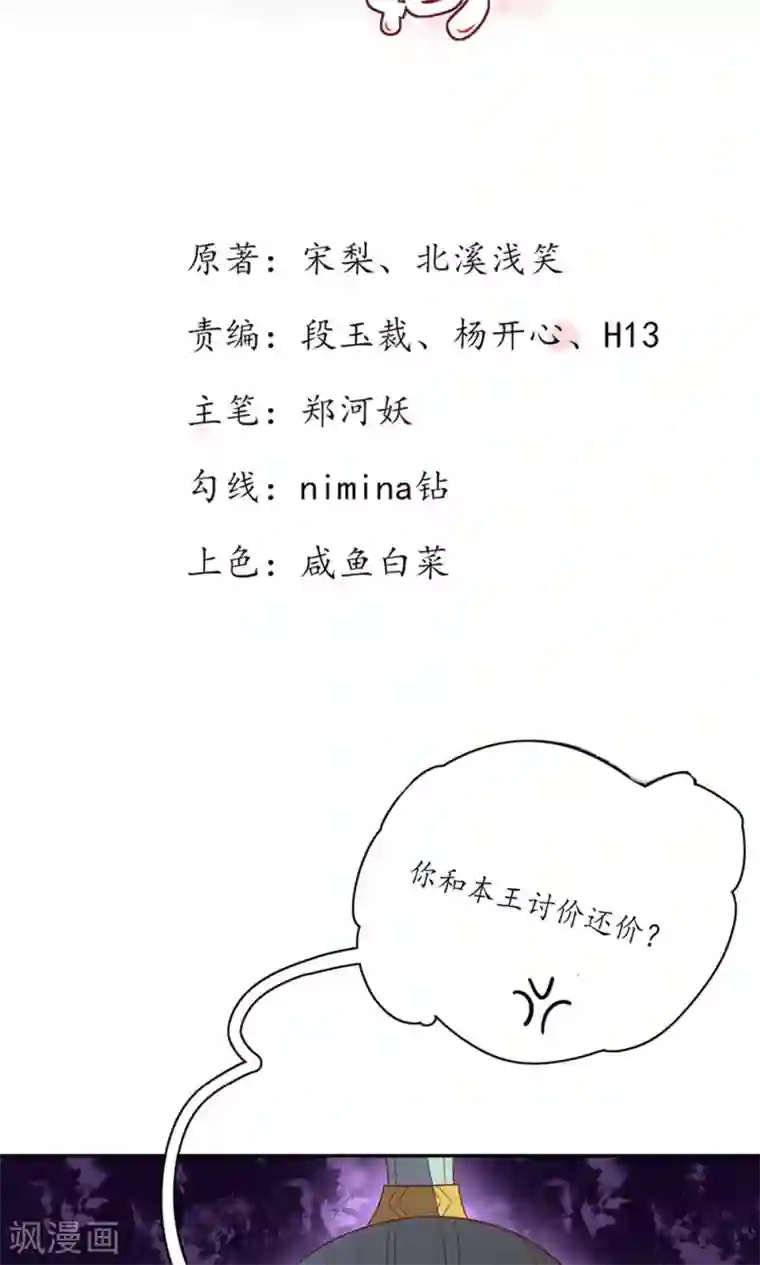 原著：宋梨、北溪浅笑
责编：段玉裁、杨开心、H13
主笔：郑河妖
勾线：nimina钻
上色：咸鱼白菜
你和本王讨价还价？
飒漫画